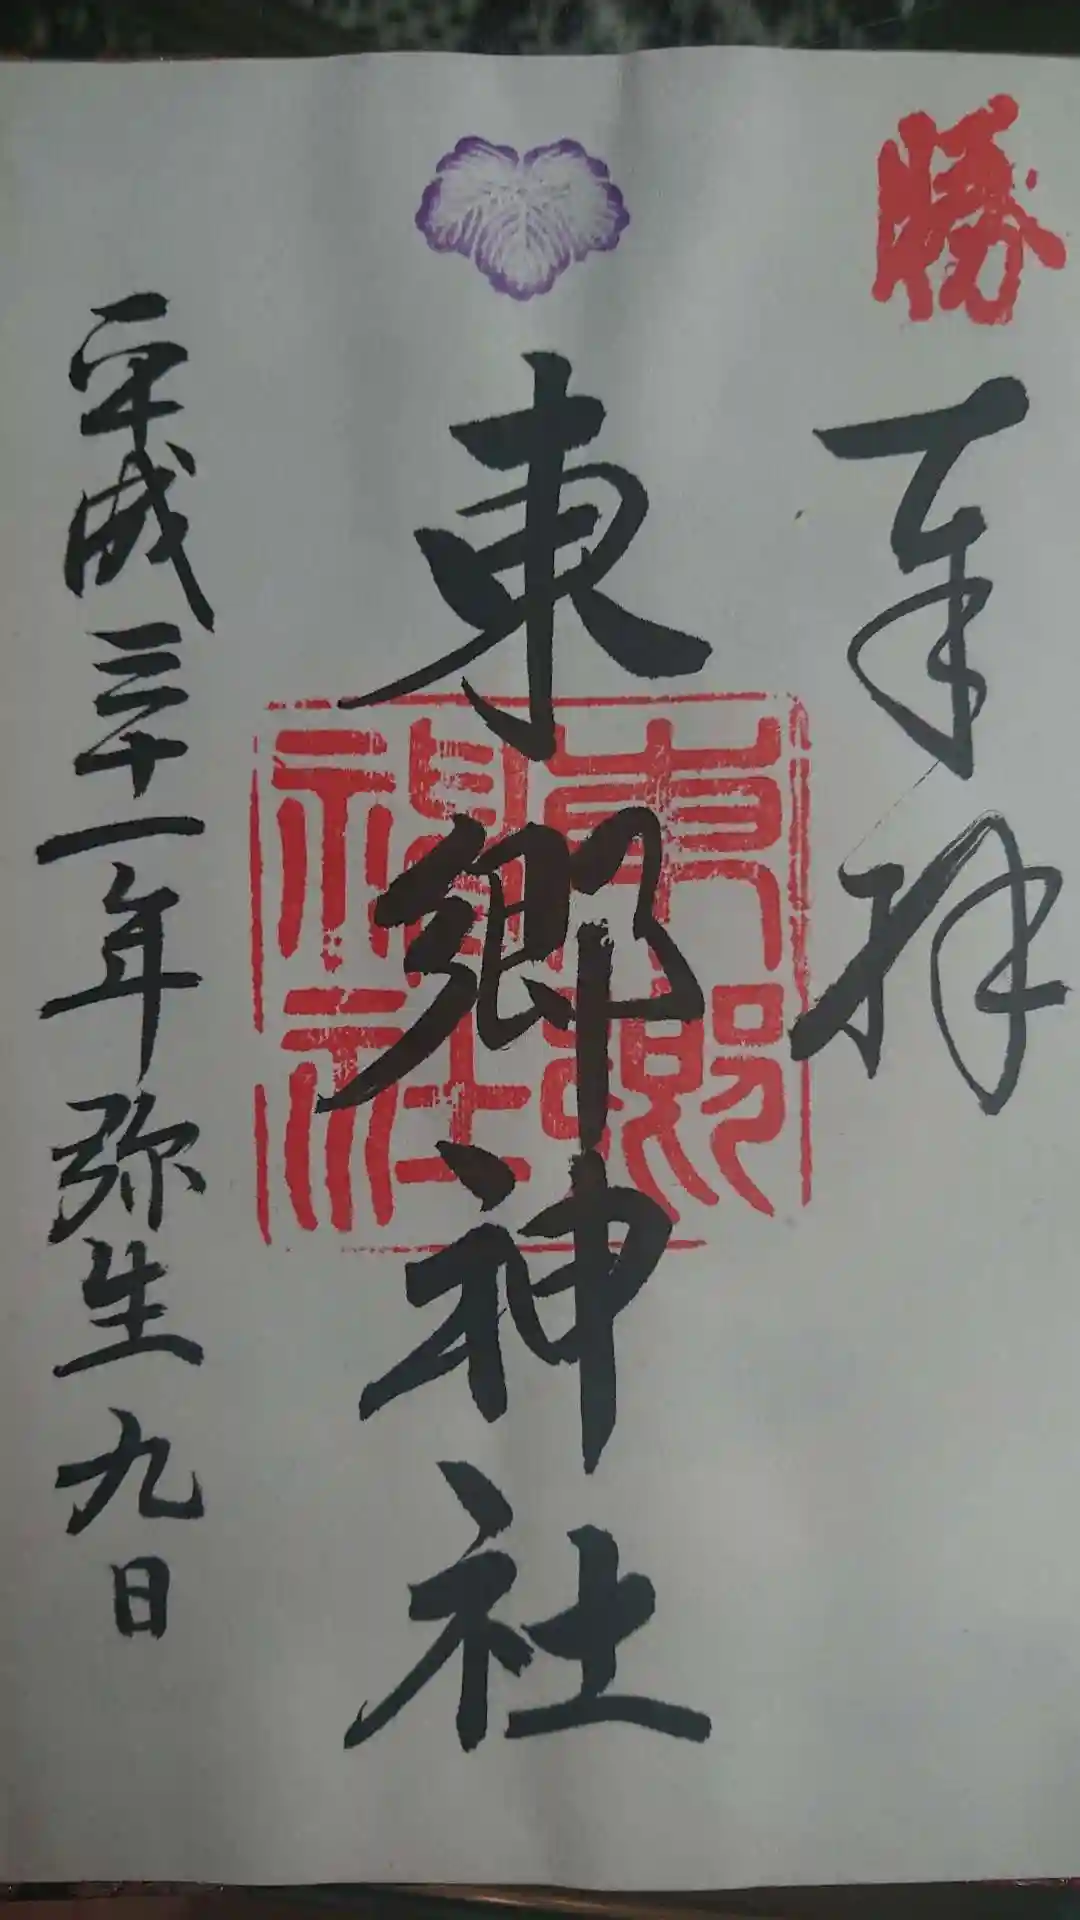 勝
奉拝
東郷神社
東郷
神社
平成三十一年弥生九日